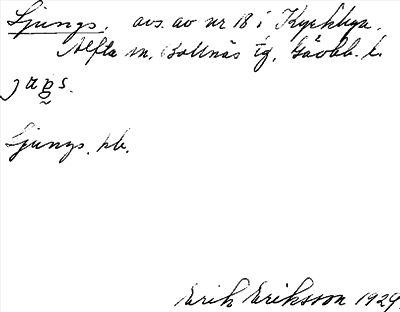 Ljungs. avs. av nr 18 i Kyrkbyn.
Alfta sn, Bollnäs tg, Gävleb. l.
Ljungs. kb.
Erik Eriksson 1929.